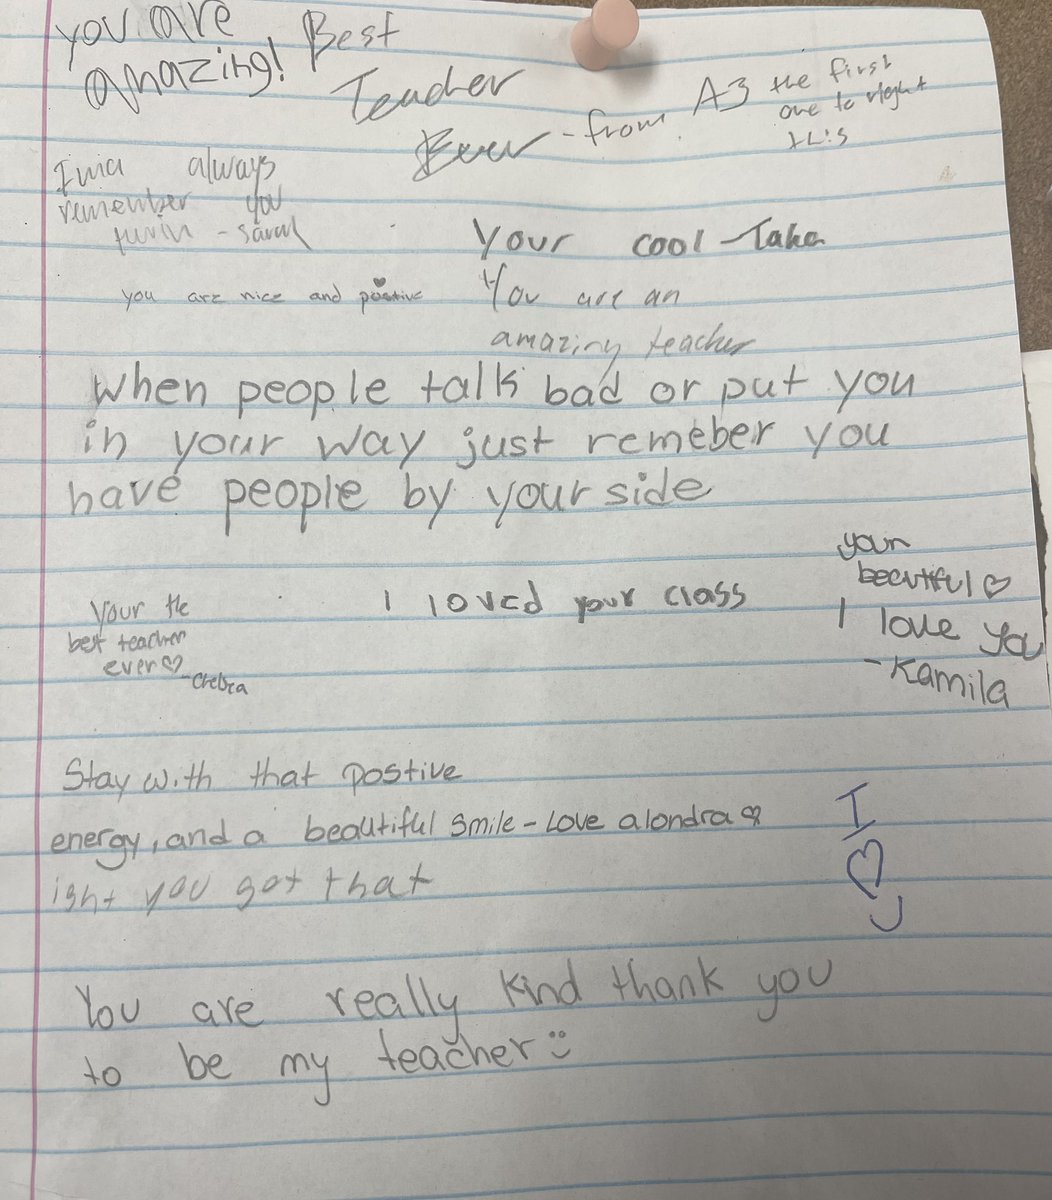 you are
amazing!
Best
Teacher
Ever - from A3 the first
one to right
this
always
remember you
twin - sarah
Your cool - Taka
you are nice and postive
You are an
amaziny teacher
When people talk bad or put you
in your way just remeber you
have people by your side
your
beautiful ♡
I love you
- Kamila
I loved your class
Your the
best teacher
ever ♡
Stay with that postive
energy, and a beautiful smile - Love alondra ♡
I ♡ U
ight you got that
You are really kind thank you
to be my teacher :)